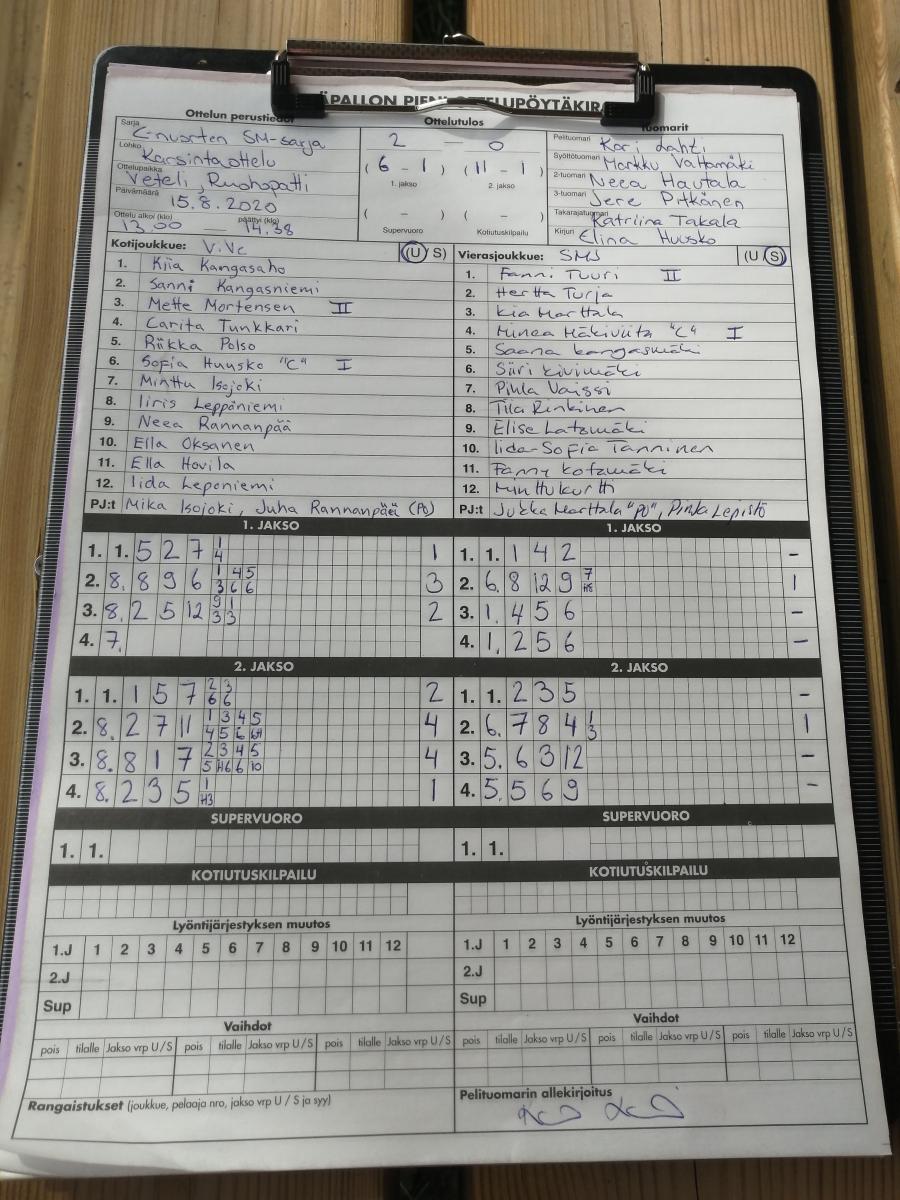 ÄPALLON PIENI OTTELUPÖYTÄKIRJA
Ottelun perustiedot
Sarja C-nuorten SM-sarja
Lohko Karsintaottelu
Ottelupaikka Veteli, Ruohopatti
Päivämäärä 15.8.2020
Ottelu alkoi (klo) 13.00 — päättyi (klo) 14.38
Ottelutulos
2 — 0
( 6 - 1 ) ( 11 - 1 )
1. jakso 2. jakso
( - ) ( - )
Supervuoro Kotiutuskilpailu
Tuomarit
Pelituomari Kari Lahti
Syöttötuomari Markku Vattamäki
2-tuomari Neea Hautala
3-tuomari Jere Pitkänen
Takarajatuomari Katriina Takala
Kirjuri Elina Huusko
Kotijoukkue: V.Ve (U S)
1. Kiia Kangasaho
2. Sanni Kangasniemi
3. Mette Mortensen II
4. Carita Tunkkari
5. Riikka Polso
6. Sofia Huusko "C" I
7. Minttu Isojoki
8. Iiris Leppäniemi
9. Neea Rannanpää
10. Ella Oksanen
11. Ella Hovila
12. Iida Leponiemi
PJ:t Mika Isojoki, Juha Rannanpää (PJ)
Vierasjoukkue: SMJ (U S)
1. Fanni Tuuri II
2. Hertta Turja
3. Kia Marttala
4. Minea Mäkiviita "C" I
5. Saana Kangasmäki
6. Siiri Kivimäki
7. Pihla Vaissi
8. Tiia Rinkinen
9. Elise Latomäki
10. Iida-Sofia Tanninen
11. Fanny Kotamäki
12. Minttu Kurtti
PJ:t Jukka Marttala "PJ", Pinla Lepistö
1. JAKSO
1. 1. 5 2 7 1 4 1
2. 8. 8 9 6 1 4 5 3 6 6 3
3. 8. 2 5 12 9 1 3 3 2
4. 7.
1. JAKSO
1. 1. 1 4 2 -
2. 6. 8 12 9 7 H8 1
3. 1. 4 5 6 -
4. 1. 2 5 6 -
2. JAKSO
1. 1. 1 5 7 2 3 6 6 2
2. 8. 2 7 11 1 3 4 5 4 5 6 6H 4
3. 8. 8 1 7 2 3 4 5 5 H6 6 10 4
4. 8. 2 3 5 1 H3 1
2. JAKSO
1. 1. 2 3 5 -
2. 6. 7 8 4 1 3 1
3. 5. 6 3 12 -
4. 5. 5 6 9 -
SUPERVUORO
1. 1.
SUPERVUORO
1. 1.
KOTIUTUSKILPAILU
KOTIUTUSKILPAILU
Lyöntijärjestyksen muutos
1.J 1 2 3 4 5 6 7 8 9 10 11 12
2.J
Sup
Lyöntijärjestyksen muutos
1.J 1 2 3 4 5 6 7 8 9 10 11 12
2.J
Sup
Vaihdot
pois tilalle Jakso vrp U/S pois tilalle Jakso vrp U/S pois tilalle Jakso vrp U/S
Vaihdot
pois tilalle Jakso vrp U/S pois tilalle Jakso vrp U/S pois tilalle Jakso vrp U/S
Rangaistukset (joukkue, pelaaja nro, jakso vrp U / S ja syy)
Pelituomarin allekirjoitus